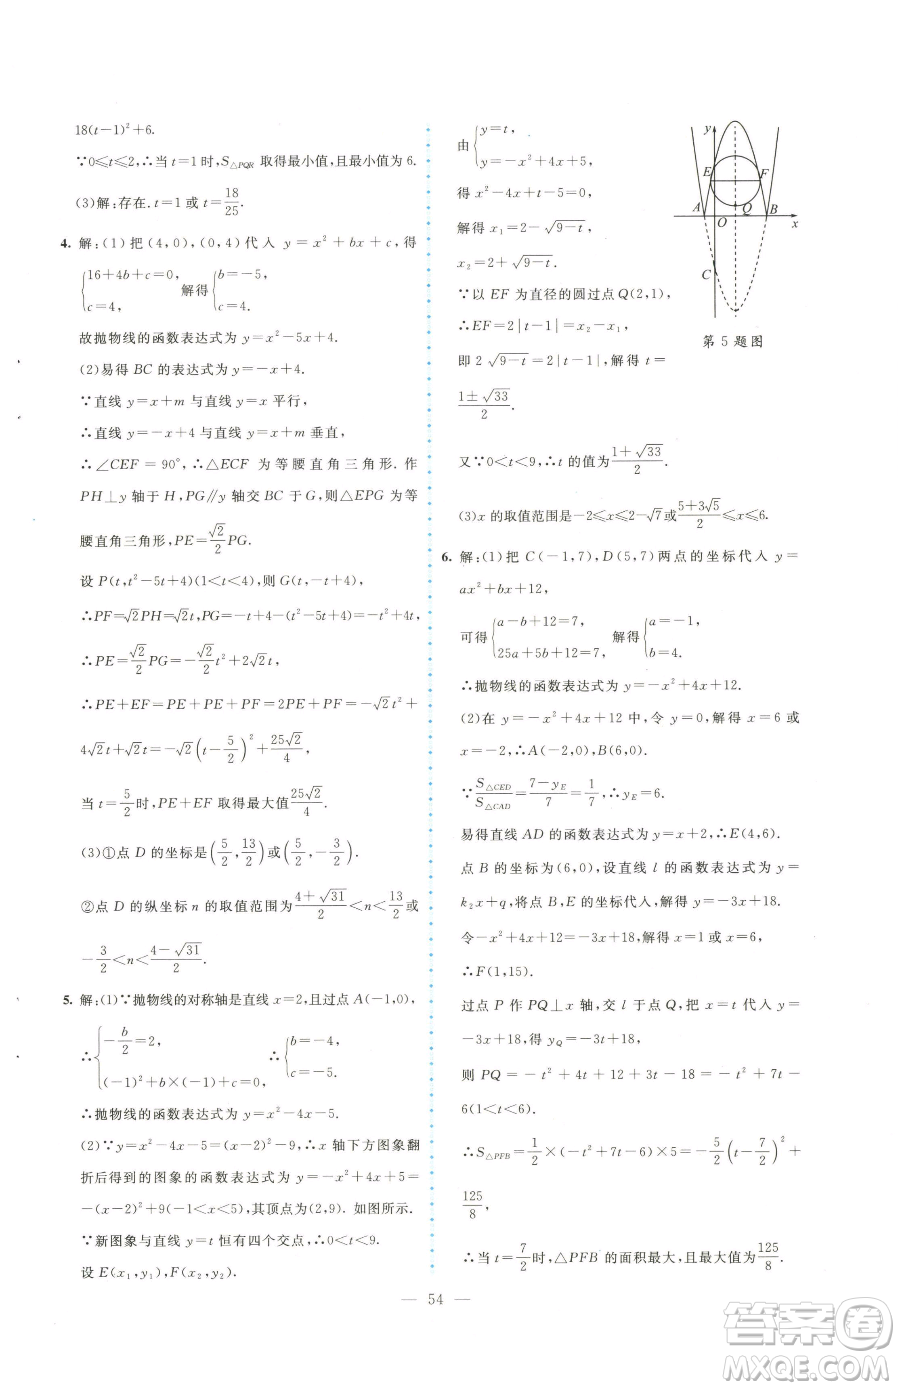 18(t−1)²+6.
∵0⩽t⩽2,∴当 t=1 时,S△PQR 取得最小值,且最小值为 6.
(3)解:存在. t=1 或 t=18/25.
4. 解:(1)把(4,0),(0,4)代入 y=x²+bx+c,得
{16+4b+c=0, c=4, 解得{b=−5, c=4.
故抛物线的函数表达式为 y=x²−5x+4.
(2)易得 BC 的表达式为 y=−x+4.
∵直线 y=x+m 与直线 y=x 平行,
∴直线 y=−x+4 与直线 y=x+m 垂直,
∴∠CEF=90°,∴△ECF 为等腰直角三角形. 作
PH⊥y 轴于 H,PG∥y 轴交 BC 于 G,则△EPG 为等
腰直角三角形,PE=√2/2 PG.
设 P(t,t²−5t+4)(1<t<4),则 G(t,−t+4),
∴PF=√2PH=√2t,PG=−t+4−(t²−5t+4)=−t²+4t,
∴PE=√2/2 PG=−√2/2 t²+2√2t,
∴PE+EF=PE+PE+PF=2PE+PF=−√2t²+
4√2t+√2t=−√2(t−5/2)²+25√2/4,
当 t=5/2 时,PE+EF 取得最大值 25√2/4.
(3)①点 D 的坐标是(5/2,13/2)或(5/2,−3/2).
②点 D 的纵坐标 n 的取值范围为 (4+√31)/2<n<13/2 或
−3/2<n<(4−√31)/2.
5. 解:(1)∵抛物线的对称轴是直线 x=2,且过点 A(−1,0),
∴{−b/2=2, (−1)²+b×(−1)+c=0, ∴{b=−4, c=−5.
∴抛物线的函数表达式为 y=x²−4x−5.
(2)∵y=x²−4x−5=(x−2)²−9,∴x 轴下方图象翻
折后得到的图象的函数表达式为 y=−x²+4x+5=
−(x−2)²+9(−1<x<5),其顶点为(2,9). 如图所示.
∵新图象与直线 y=t 恒有四个交点,∴0<t<9.
设 E(x₁,y₁),F(x₂,y₂).
由{y=t, y=−x²+4x+5,
得 x²−4x+t−5=0,
解得 x₁=2−√(9−t),
x₂=2+√(9−t).
∵以 EF 为直径的圆过点 Q(2,1),
∴EF=2|t−1|=x₂−x₁,
即 2√(9−t)=2|t−1|,解得 t=
(1±√33)/2.
又∵0<t<9,∴t 的值为 (1+√33)/2.
(3)x 的取值范围是−2⩽x⩽2−√7或 (5+3√5)/2⩽x⩽6.
y
E
F
A
O
Q
B
x
C
第 5 题图
6. 解:(1)把 C(−1,7),D(5,7)两点的坐标代入 y=
ax²+bx+12,
可得{a−b+12=7, 25a+5b+12=7, 解得{a=−1, b=4.
∴抛物线的函数表达式为 y=−x²+4x+12.
(2)在 y=−x²+4x+12 中,令 y=0,解得 x=6 或
x=−2,∴A(−2,0),B(6,0).
∵S△CED/S△CAD=(7−yE)/7=1/7,∴yE=6.
易得直线 AD 的函数表达式为 y=x+2,∴E(4,6).
点 B 的坐标为(6,0),设直线 l 的函数表达式为 y=
k₂x+q,将点 B,E 的坐标代入,解得 y=−3x+18.
令−x²+4x+12=−3x+18,解得 x=1 或 x=6,
∴F(1,15).
过点 P 作 PQ⊥x 轴,交 l 于点 Q,把 x=t 代入 y=
−3x+18,得 yQ=−3t+18,
则 PQ=−t²+4t+12+3t−18=−t²+7t−
6(1<t<6).
∴S△PFB=1/2×(−t²+7t−6)×5=−5/2(t−7/2)²+
125/8,
∴当 t=7/2 时,△PFB 的面积最大,且最大值为 125/8.
— 54 —
答案圈
MXQE.COM